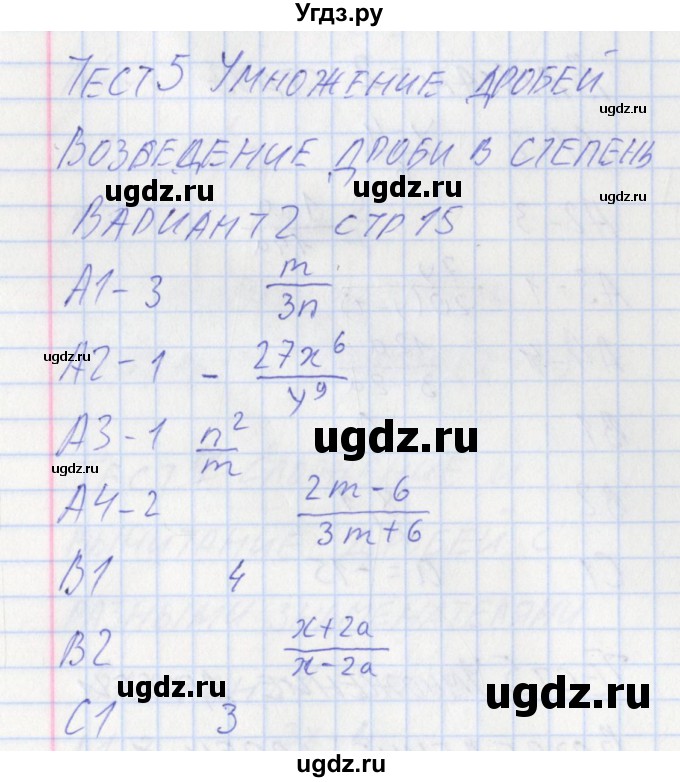 Угдз.ру
ТЕСТ 5 УМНОЖЕНИЕ ДРОБЕЙ
ugdz.ru
ВОЗВЕДЕНИЕ ДРОБИ В СТЕПЕНЬ
ugdz.ru ugdz.ru ugdz.ru
ВАРИАНТ 2 СТР 15
А1 - 3 m/3n
ugdz.ru
А2 - 1 - 27x⁶/y⁹
А3 - 1 n²/m
ugdz.ru
ugdz.ru
А4 - 2 2m - 6/3m + 6
В1 4
В2 x + 2a/x - 2a
ugdz.ru
С1 3
ugdz.ru